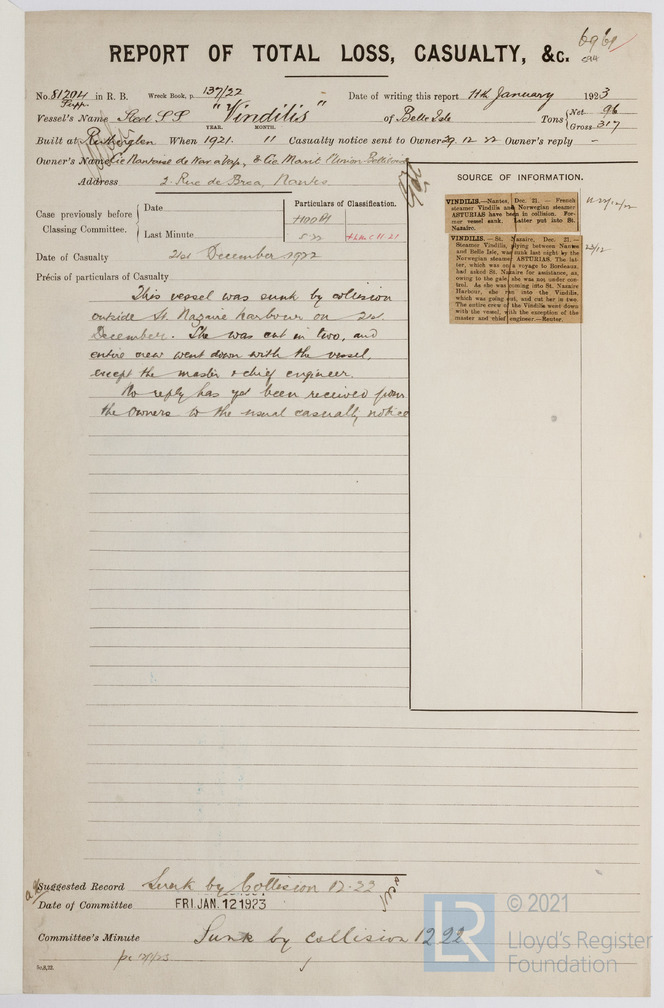 6969
REPORT OF TOTAL LOSS, CASUALTY, &c.
No. 81204 in R. B. Wreck Book, p. 137/22 Date of writing this report 11th January 1923
Supp.
Vessel's Name Steel SS "Vindilis" of Belle Isle Tons { Net 96
Gross 317
YEAR. MONTH.
Built at Rutherglen When 1921. 11 Casualty notice sent to Owner 29. 12 22 Owner's reply -
Owner's Name Cie Nantaise de Nav a Vap, & Cie Marit
Address 2 Rue de Brea, Nantes
SOURCE OF INFORMATION.
Case previously before Classing Committee.
Date
Last Minute
Particulars of Classification.
+100A1
5.22 +LMC 11.21
VINDILIS.—Nantes, Dec. 21. — French
steamer Vindilis and Norwegian steamer
ASTURIAS have been in collision. For-
mer vessel sunk. Latter put into St.
Nazaire.
22/12/22
VINDILIS. — St. Nazaire, Dec. 21.—
Steamer Vindilis, plying between Nantes
and Belle Isle, was sunk last night by the
Norwegian steamer ASTURIAS. The lat-
ter, which was on a voyage to Bordeaux
had asked St. Nazaire for assistance, as,
owing to the gale, she was not under con-
trol. As she was coming into St. Nazaire
Harbour, she ran into the Vindilis,
which was going out, and cut her in two.
The entire crew of the Vindilis went down
with the vessel, with the exception of the
master and chief engineer.—Reuter.
23/12
Date of Casualty 21st December 1922
Précis of particulars of Casualty
This vessel was sunk by collision
outside St. Nazaire harbour on 21st
December. She was cut in two, and
entire crew went down with the vessel,
except the master & chief engineer.
No reply has yet been received from
the Owners to the usual casualty notice
Suggested Record Sunk by Collision 12.22
Date of Committee FRI. JAN. 12 1923
Committee's Minute Sunk by collision 12 22
12/1/23
LR
© 2021
Lloyd's Register
Foundation